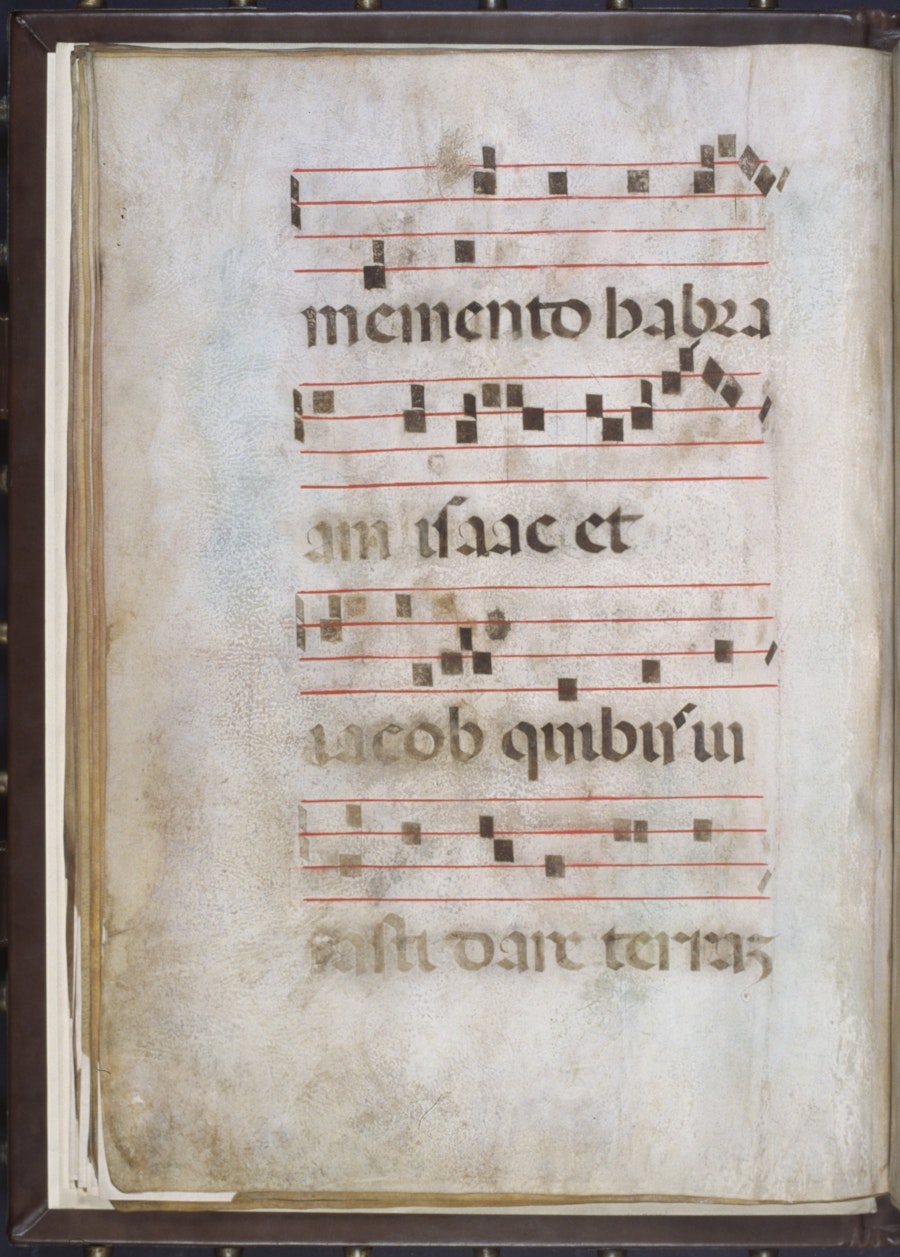 memento habra
am isaac et
iacob quibus iu
rasti dare terraz